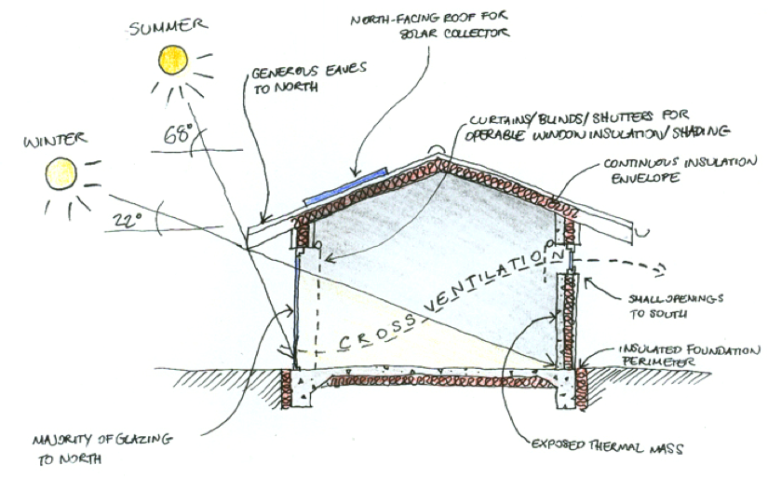 SUMMER
NORTH-FACING ROOF FOR
SOLAR COLLECTOR
GENEROUS EAVES
TO NORTH
CURTAINS/BLINDS/SHUTTERS FOR
OPERABLE WINDOW INSULATION/SHADING
68°
WINTER
CONTINUOUS INSULATION
ENVELOPE
22°
CROSS VENTILATION
SMALL OPENINGS
TO SOUTH
INSULATED FOUNDATION
PERIMETER
MAJORITY OF GLAZING
TO NORTH
EXPOSED THERMAL MASS